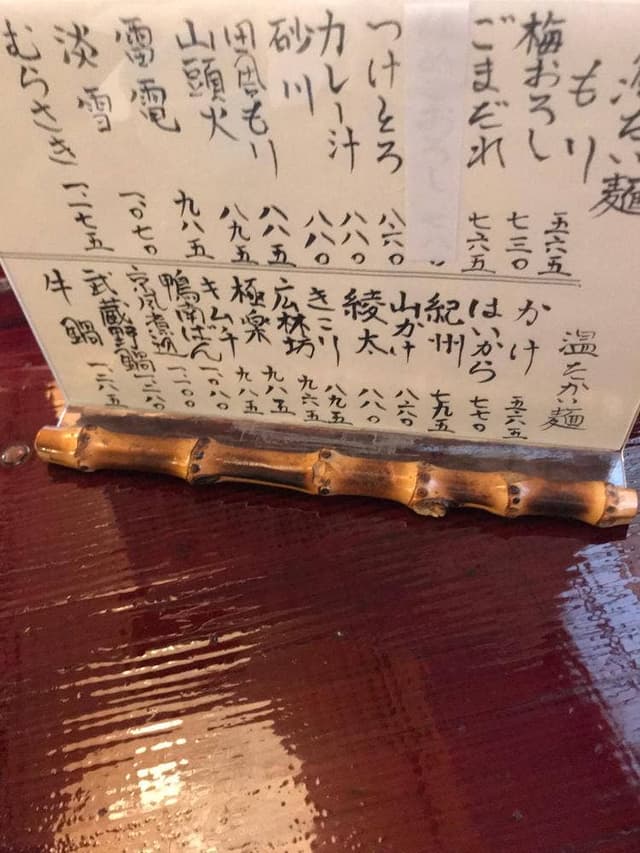 冷たい麺
もり 五六五
梅おろし 七三〇
ごまだれ 七六五
つけとろ 八六〇
カレー汁 八八〇
砂川 八八〇
田舎もり 八八五
山頭火 八九五
雷電 九八五
淡雪 一、〇七〇
むらさき 一、一七五
温たかい麺
かけ 五六五
はいから 七七〇
紀州 七九五
山かけ 八六〇
綾太 八八〇
きこり 八九五
広林坊 九六五
極楽 九八五
キムチ 九八五
鴨南ばん 一、〇八〇
京風煮込 一、一〇〇
武蔵野鍋 一、二八〇
牛鍋 一、二六五